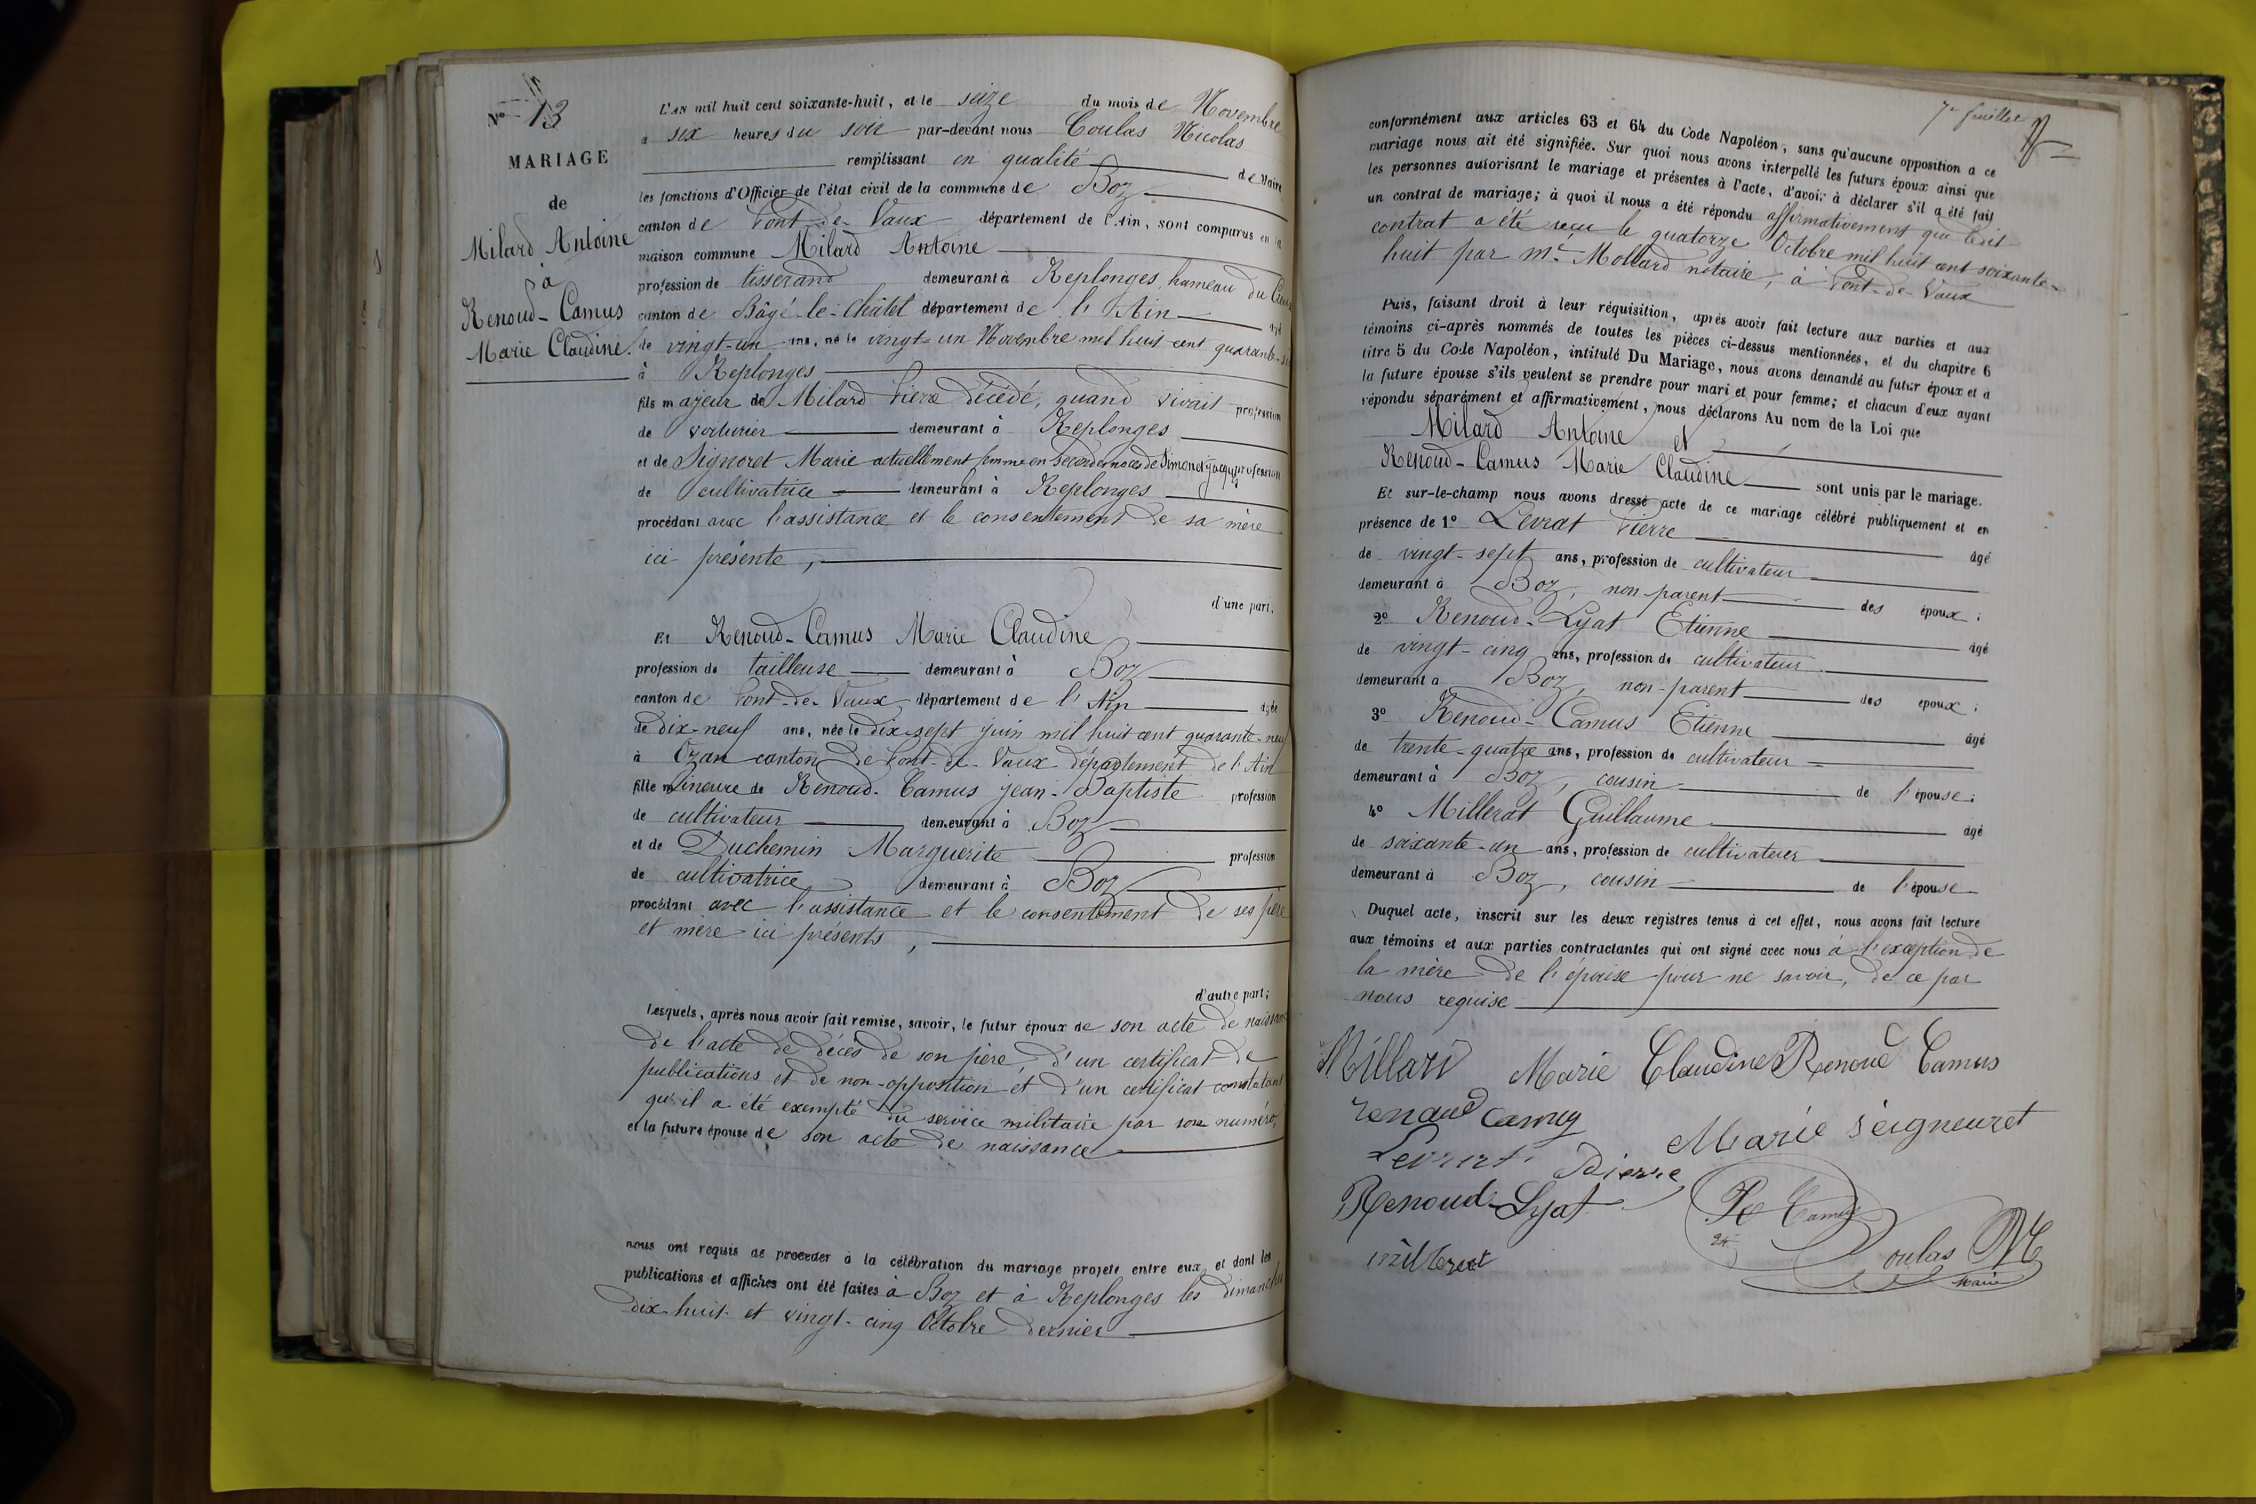 N° 13
MARIAGE
de
Milard Antoine
à
Renoud-Camus
Marie Claudine.
L'AN mil huit cent soixante-huit, et le seize du mois de Novembre
a six heures du soir par-devant nous Coulas Nicolas
remplissant en qualité de Maire
les fonctions d'Officier de l'état civil de la commune de Boz
canton de Pont-de-Vaux département de l'Ain, sont comparus en la
maison commune Milard Antoine
profession de tisserand demeurant à Replonges hameau du
canton de Bâgé-le-Châtel département de l'Ain âgé
de vingt-un ans, né le vingt-un Novembre mil huit cent quarante-six
à Replonges
fils majeur de Milard Pierre décédé, quand vivait profession
de voiturier demeurant à Replonges
et de Signoret Marie actuellement femme en secondes noces de Simonet Jacques profession
de cultivatrice demeurant à Replonges
procédant avec l'assistance et le consentement de sa mère
ici présente,
d'une part.
Et Renoud-Camus Marie Claudine
profession de tailleuse demeurant à Boz
canton de Pont-de-Vaux département de l'Ain âgée
de dix-neuf ans, née le dix-sept juin mil huit cent quarante-neuf
à Ozan canton de Pont-de-Vaux département de l'Ain
fille mineure de Renoud-Camus Jean-Baptiste profession
de cultivateur demeurant à Boz
et de Duchemin Marguerite profession
de cultivatrice demeurant à Boz
procédant avec l'assistance et le consentement de ses père
et mère ici présents,
d'autre part;
Lesquels, après nous avoir fait remise, savoir, le futur époux de son acte de naissance
de l'acte de décès de son père, d'un certificat de
publications et de non-opposition et d'un certificat constatant
qu'il a été exempté du service militaire par son numéro,
et la future épouse de son acte de naissance
nous ont requis de procéder à la célébration du mariage projeté entre eux et dont les
publications et affiches ont été faites à Boz et à Replonges les dimanches
dix-huit et vingt-cinq Octobre dernier
7e feuillet
conformément aux articles 63 et 64 du Code Napoléon, sans qu'aucune opposition a ce
mariage nous ait été signifiée. Sur quoi nous avons interpellé les futurs époux ainsi que
les personnes autorisant le mariage et présentes à l'acte, d'avoir à déclarer s'il a été fait
un contrat de mariage; à quoi il nous a été répondu affirmativement que ledit
contrat a été reçu le quatorze Octobre mil huit cent soixante-
huit par Me Mollard notaire, à Pont-de-Vaux
Puis, faisant droit à leur réquisition, après avoir fait lecture aux parties et aux
témoins ci-après nommés de toutes les pièces ci-dessus mentionnées, et du chapitre 6
titre 5 du Code Napoléon, intitulé Du Mariage, nous avons demandé au futur époux et a
la future épouse s'ils veulent se prendre pour mari et pour femme; et chacun d'eux ayant
répondu séparément et affirmativement, nous déclarons Au nom de la Loi que
Milard Antoine et
Renoud-Camus Marie Claudine sont unis par le mariage.
Et sur-le-champ nous avons dressé acte de ce mariage célébré publiquement et en
présence de 1° Levrat Pierre âgé
de vingt-sept ans, profession de cultivateur
demeurant à Boz, non-parent des époux;
2° Renoud-Lyat Etienne âgé
de vingt-cinq ans, profession de cultivateur
demeurant a Boz, non-parent des époux;
3° Renoud-Camus Etienne âgé
de trente-quatre ans, profession de cultivateur
demeurant à Boz, cousin de l'épouse;
4° Millerat Guillaume âgé
de soixante-un ans, profession de cultivateur
demeurant à Boz, cousin de l'épouse
Duquel acte, inscrit sur les deux registres tenus à cet effet, nous avons fait lecture
aux témoins et aux parties contractantes qui ont signé avec nous à l'exception de
la mère de l'épouse pour ne savoir, de ce par
nous requise
Millard Marie Claudine Renoud Camus
renaud camus Marie seigneuret
Levrat Pierre
Renoud-Lyat R Camus
millerat Coulas N
Maire